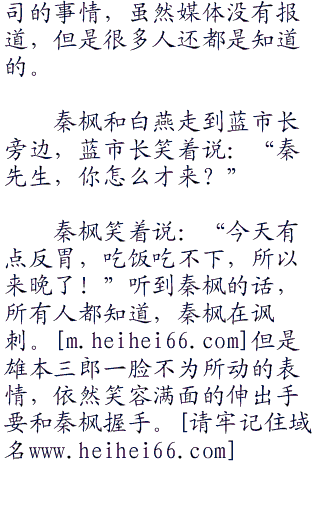 司的事情，虽然媒体没有报
道，但是很多人还都是知道
的。
秦枫和白燕走到蓝市长
旁边，蓝市长笑着说：“秦
先生，你怎么才来？”
秦枫笑着说：“今天有
点反胃，吃饭吃不下，所以
来晚了！”听到秦枫的话，
所有人都知道，秦枫在讽
刺。[m.heihei66.com]但是
雄本三郎一脸不为所动的表
情，依然笑容满面的伸出手
要和秦枫握手。[请牢记住域
名www.heihei66.com]